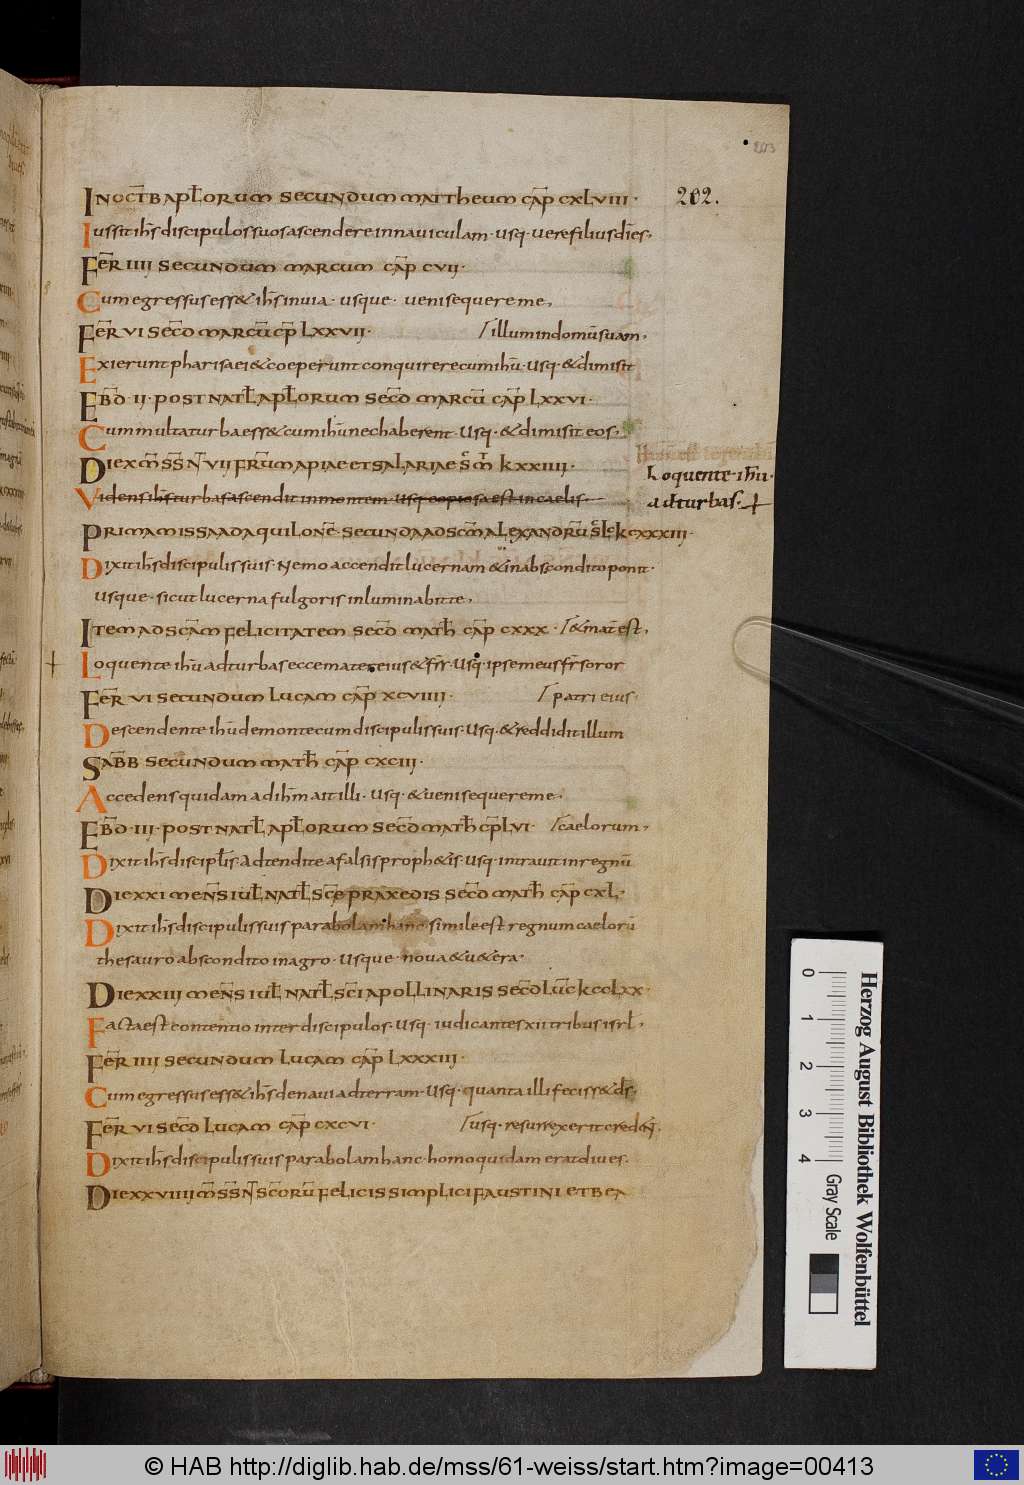 203
202.
INOCT̅B APL̅ORUM SECUNDUM MATTHEUM CAP̅ CXLVIII·
Iussit ih̅s discipulos suos ascendere in naviculam· usq· vere filius dī es.
FER̅ IIII SECUNDUM MARCUM CAP̅ CVII·
Cum egressus ess& ih̅s in via· usque· veni sequere me.
FER̅ VI SEC̅D MARCU̅ CP̅ LXXVII· / illum in domu̅ suam.
Exierunt pharisaei & coeperunt conquirere cum ihu̅· usq· & dimisit
EBD̅· II· POST NATL̅ APL̅ORUM SEC̅D MARCU̅ CAP̅ LXXVI·
Cum multa turba ess& cum ihu̅ nec haberent· usq· & dimisit eos.
DIE X M̅S S̅N̅ VII FR̅UM APIAE ET SALARIAE S̅ M̅ K XXIIII·
Loquente· ihu̅·
ad turbas·
Videns ih̅s turbas ascendit in montem· usq copiosa est in caelis·
PRIMA MISSA AD AQUILONE̅· SECUNDA AD SC̅M ALEXANDRU̅ S̅ L̅C̅ K CXXXIII·
Dixit ih̅s discipulis suis· Nemo accendit lucernam & in abscondito ponit·
usque· sicut lucerna fulgoris inluminabit te.
ITEM AD SC̅AM FELICITATEM SEC̅D MATH̅ CAP̅ CXXX· / & mat̅ est.
Loquente ihu̅ ad turbas ecce mater eius & fr̅s· usq· ipse meus fr̅ soror
FER̅ VI SECUNDUM LUCAM CAP̅ XCVIIII· / patri eius·
Descendente ihu̅ de monte cum discipulis suis· usq· & reddidit illum
SABB̅ SECUNDUM MATH̅ CAP̅ CXCIII·
Accedens quidam ad ih̅m ait illi· usq· & veni sequere me.
EBD̅· III· POST NATL̅ APL̅ORUM SEC̅D MATH̅ CP̅ LVI· / caelorum.
Dixit ih̅s discipl̅is· Adtendite a falsis proph&is· usq· intravit in regnu̅
DIE XXI MEN̅S IUL̅ NATL̅ SC̅E PRAXEDIS SEC̅D MATH̅ CAP̅ CXL·
Dixit ih̅s discipulis suis parabolam hanc· simile est regnum caeloru̅
thesauro abscondito in agro· usque· nova & v&era·
DIE XXIII MEN̅S IUL̅ NATL̅ SC̅I APOLLINARIS SEC̅D LU̅C K CCLXX·
Facta est contentio inter discipulos· usq· iudicantes xii tribus isrl̅.
FER̅ IIII SECUNDUM LUCAM CAP̅ LXXXIII·
Cum egressus ess& ih̅s de navi ad terram· usq· quanta illi feciss& ds̅.
FER̅ VI SEC̅D LUCAM CAP̅ CXCVI· / usq· resurrexerit credn̅t.
Dixit ih̅s discipulis suis parabolam hanc· homo quidam erat dives·
DIE XXVIIII M̅S S̅N̅ SC̅ORU̅ FELICIS SIMPLICI FAUSTINI ET BEA
Herzog August Bibliothek Wolfenbüttel
0 1 2 3 4 Gray Scale
© HAB http://diglib.hab.de/mss/61-weiss/start.htm?image=00413